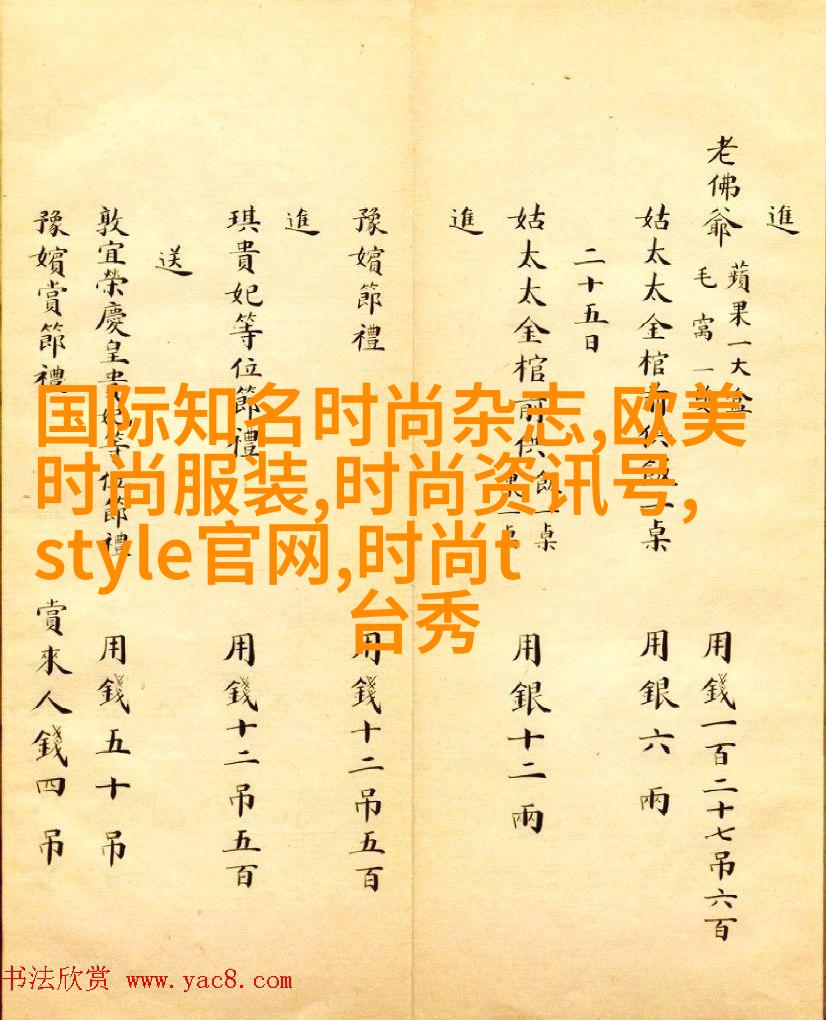 進
老佛爺 蘋果一大盒 毛窩一 用錢一百二十七吊六百
姑太太金棺前供飯一桌 用銀六兩
二十五日
姑太太金棺前供飯一桌 果一桌 用銀十二兩
進
豫嬪節禮 用錢十二吊五百
進
琪貴妃等位節禮 用錢十二吊五百
送
敦宜榮慶皇貴妃等位節禮 用錢五十吊
豫嬪賞節禮 賞來人錢四吊
国际知名时尚杂志,欧美
时尚服装,时尚资讯号,
style官网,时尚t
台秀
书法欣赏 www.yac8.com